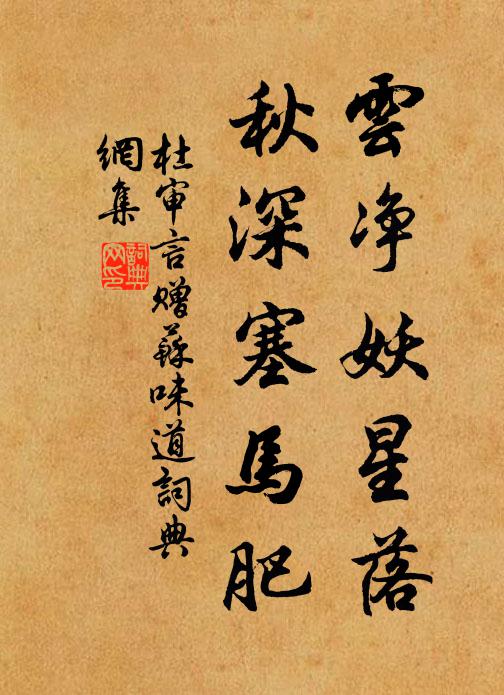 雲净妖星落
秋深塞馬肥
杜审言赠蘇味道詞典
網集
詞典
网印